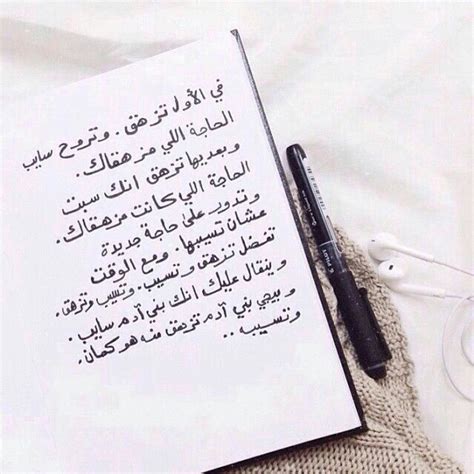 في الأول تزهق. وتروح سايب
الحاجة اللي مزهقاك.
وبعديها تزهق انك سبت
الحاجة اللي كانت مزهقاك.
وتدور على حاجة جديدة
عشان تسيبها. ومع الوقت
تفضل تزهق وتسيب. وتسيب وتزهق.
ويتقال عليك انك بني آدم سايب.
ويجي بني آدم تزهق منه هو كمان.
وتسيبه ..
PILOT